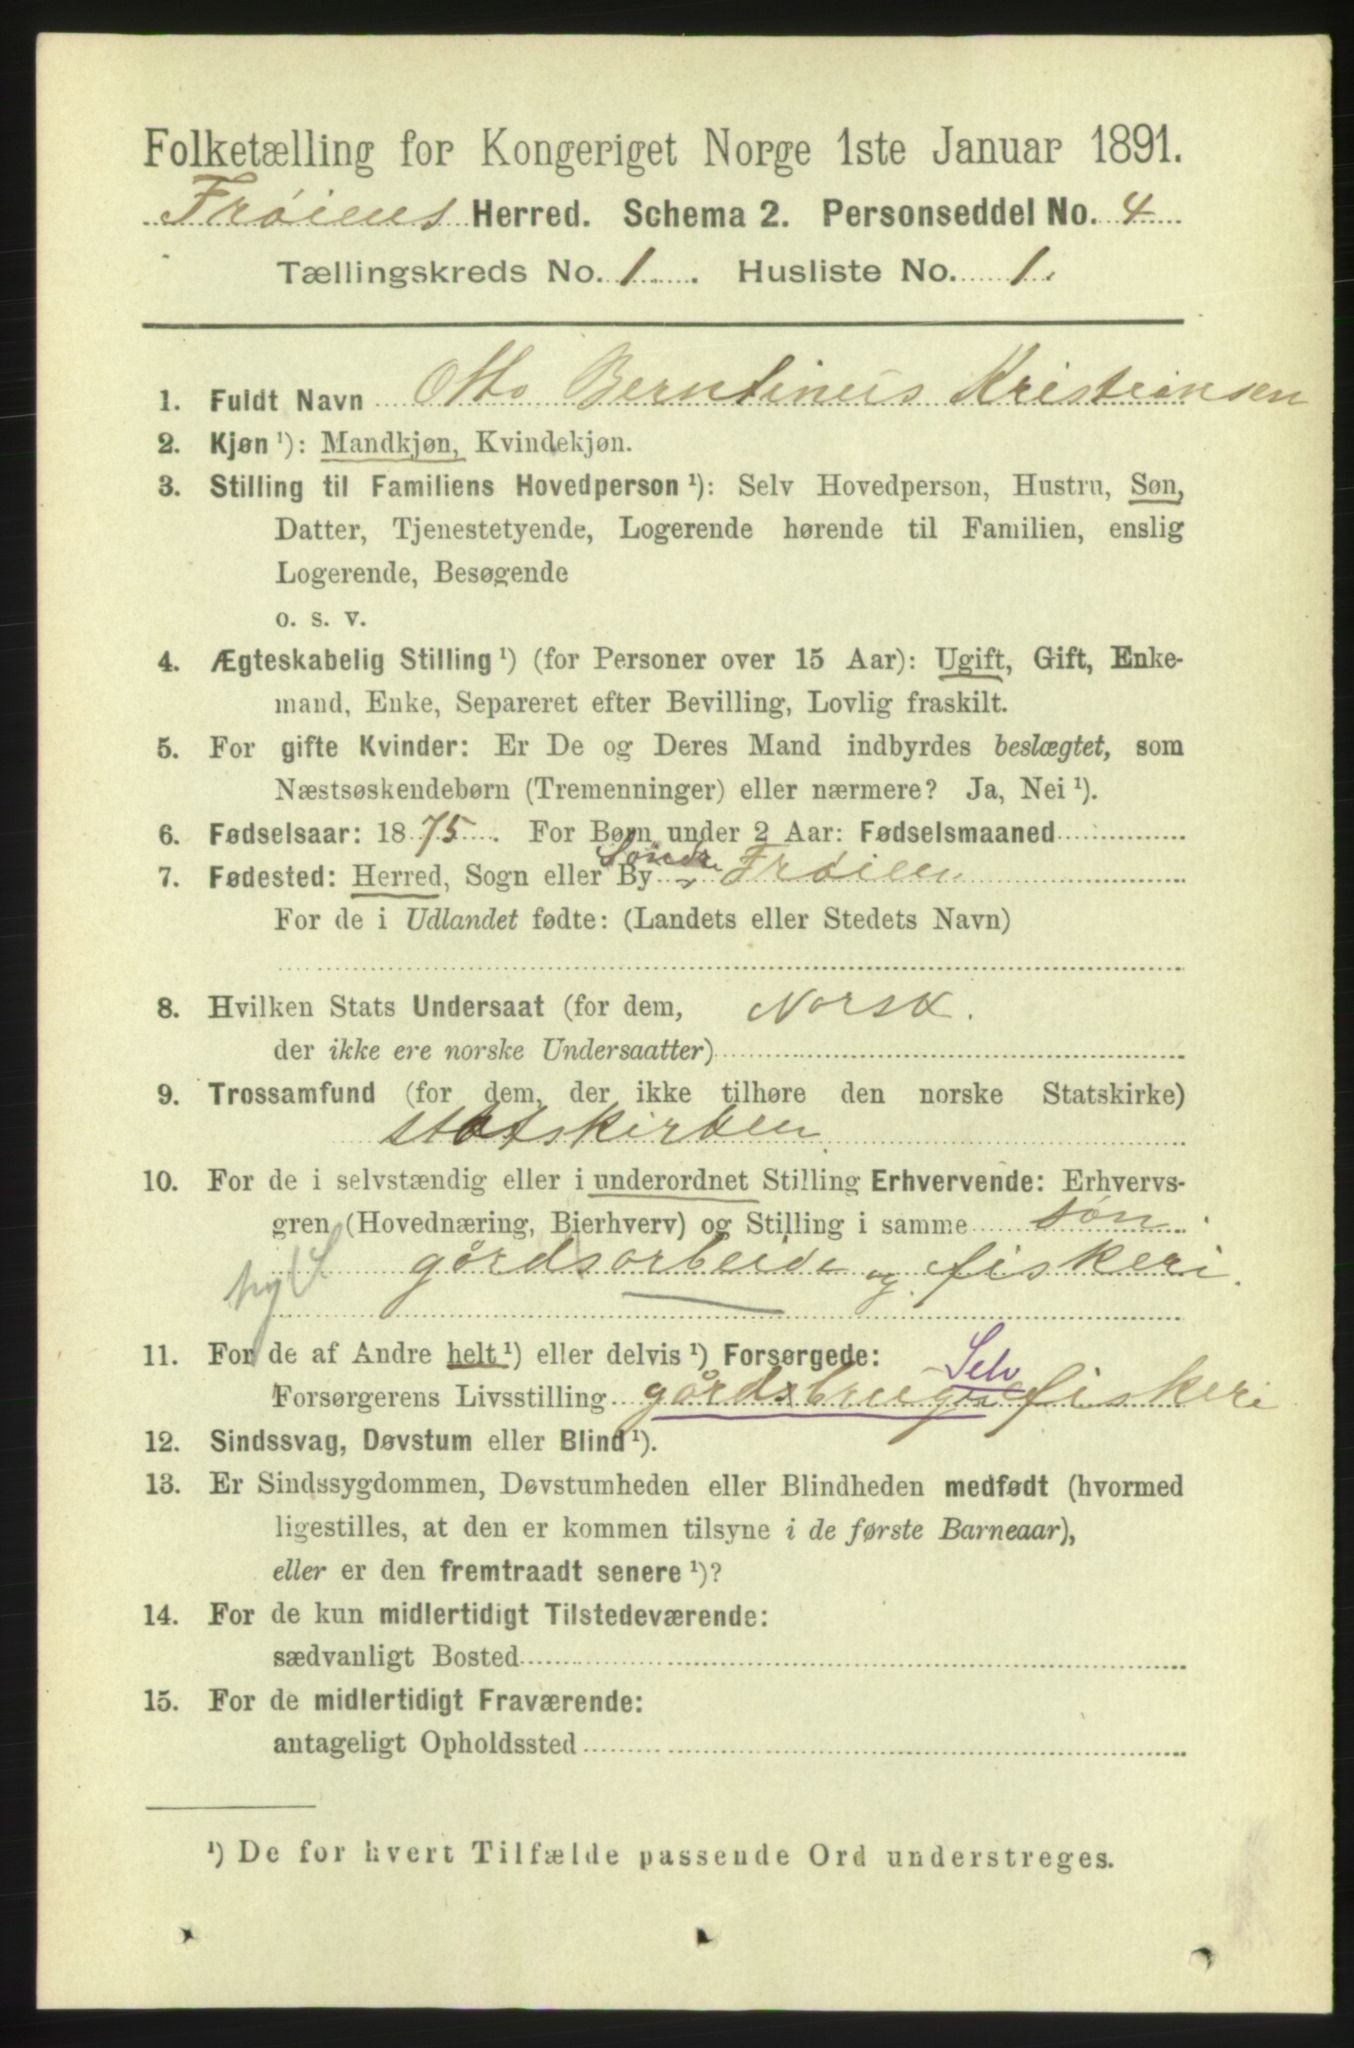 Folketælling for Kongeriget Norge 1ste Januar 1891.
Frøiens Herred. Schema 2. Personseddel No. 4
Tællingskreds No. 1. Husliste No. 1.
1. Fuldt Navn Otto Berntinus Kristiansen
2. Kjøn ¹): Mandkjøn, Kvindekjøn.
3. Stilling til Familiens Hovedperson ¹): Selv Hovedperson, Hustru, Søn,
Datter, Tjenestetyende, Logerende hørende til Familien, enslig
Logerende, Besøgende
o. s. v.
4. Ægteskabelig Stilling ¹) (for Personer over 15 Aar): Ugift, Gift, Enke-
mand, Enke, Separeret efter Bevilling, Lovlig fraskilt.
5. For gifte Kvinder: Er De og Deres Mand indbyrdes beslægtet, som
Næstsøskendebørn (Tremenninger) eller nærmere? Ja, Nei ¹).
6. Fødselsaar: 1875. For Børn under 2 Aar: Fødselsmaaned
7. Fødested: Herred, Sogn eller By Søndr Frøien
For de i Udlandet fødte: (Landets eller Stedets Navn)
8. Hvilken Stats Undersaat (for dem, Norsk.
der ikke ere norske Undersaatter)
9. Trossamfund (for dem, der ikke tilhøre den norske Statskirke)
statskirken
10. For de i selvstændig eller i underordnet Stilling Erhvervende: Erhvervs-
gren (Hovednæring, Bierhverv) og Stilling i samme søn.
gårdsarbeide og fiskeri.
11. For de af Andre helt ¹) eller delvis ¹) Forsørgede:
Selv
Forsørgerens Livsstilling gårdsbruger fiskeri
12. Sindssvag, Døvstum eller Blind ¹).
13. Er Sindssygdommen, Døvstumheden eller Blindheden medfødt (hvormed
ligestilles, at den er kommen tilsyne i de første Barneaar),
eller er den fremtraadt senere ¹)?
14. For de kun midlertidigt Tilstedeværende:
sædvanligt Bosted
15. For de midlertidigt Fraværende:
antageligt Opholdssted
¹) De for hvert Tilfælde passende Ord understreges.